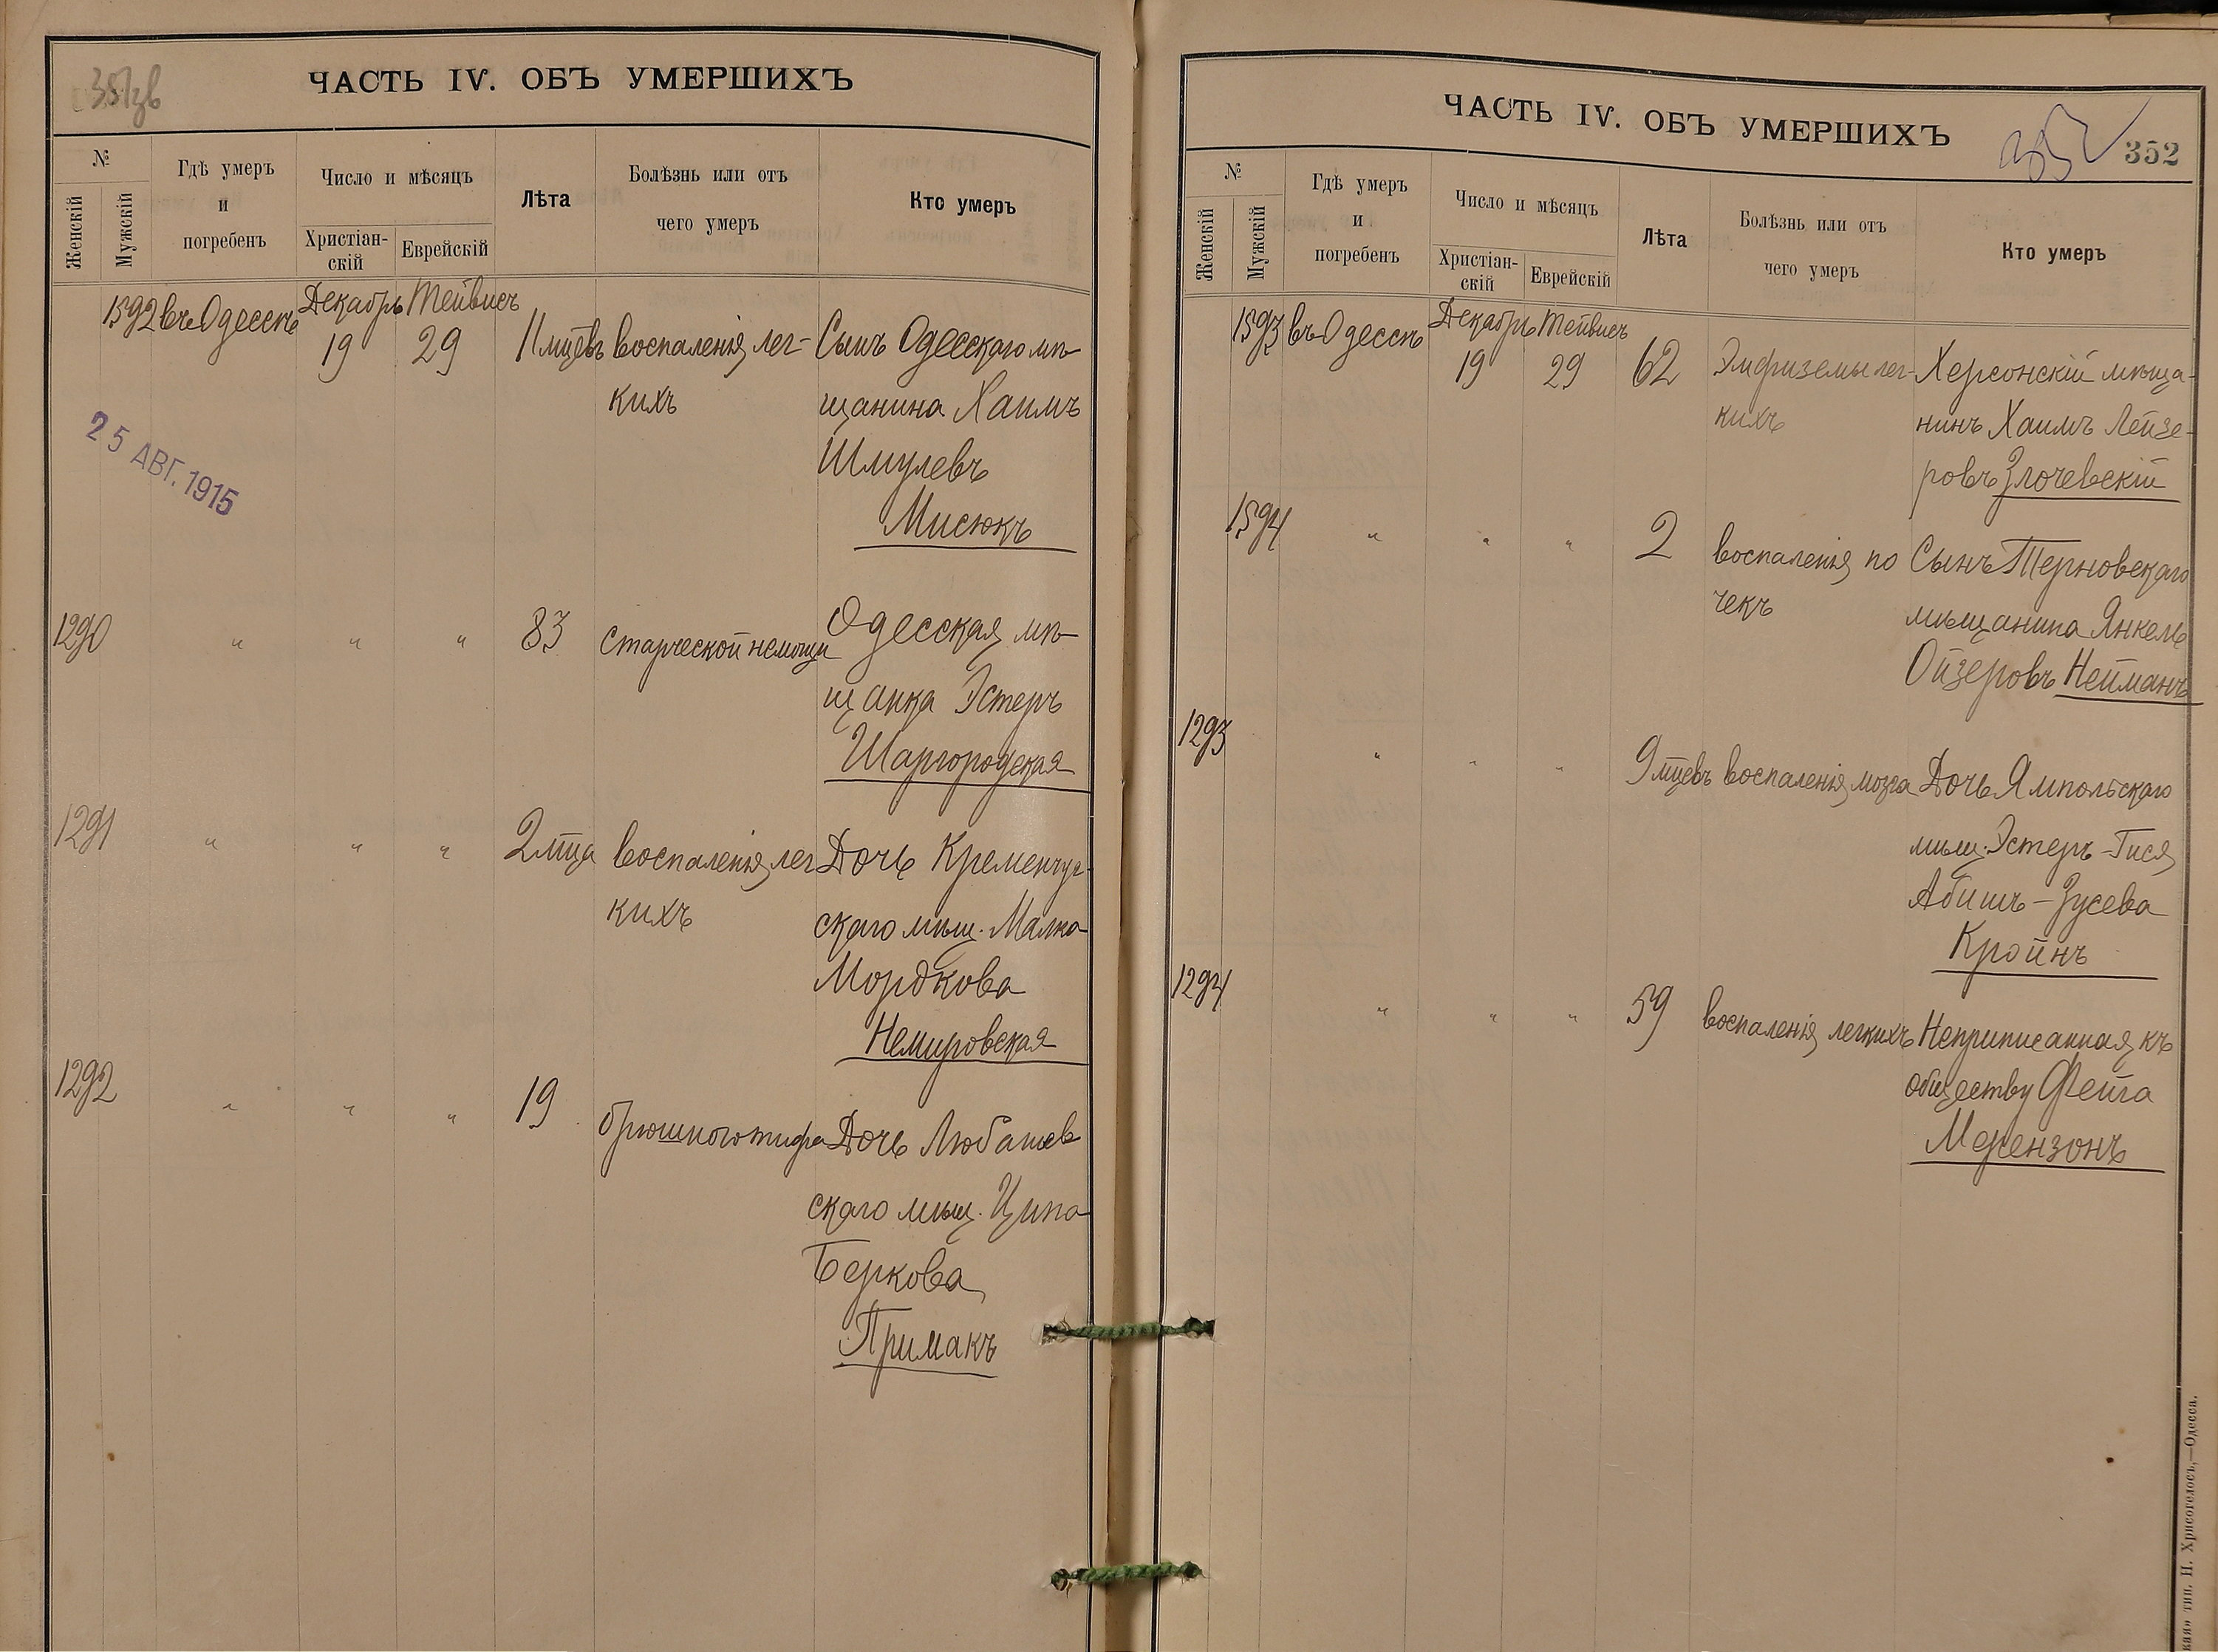 351зв
ЧАСТЬ IV. ОБЪ УМЕРШИХЪ
№
Женскій
Мужскій
Гдѣ умеръ
и
погребенъ
Число и мѣсяцъ
Христіан-
скій
Еврейскій
Лѣта
Болѣзнь или отъ
чего умеръ
Кто умеръ
1592 въ Одессѣ Декабрь Тейвисъ
19 29 11 мцевъ воспаленія лег- Сынъ Одесскаго мѣ-
кихъ щанина Хаимъ
Шмулевъ
Мисюкъ
25 АВГ. 1915
1290 " " " 83 старческой немощи Одесская мѣ-
щанка Эстеръ
Шаргородская
1291 " " " 2 мца воспаленія лег Дочь Кременчуг-
кихъ скаго мѣщ. Малка
Мордкова
Немировская
1292 " " " 19 брюшного тифа Дочь Любашев
скаго мѣщ. Ципа
Беркова
Примакъ
ЧАСТЬ IV. ОБЪ УМЕРШИХЪ
352
352
№
Женскій
Мужскій
Гдѣ умеръ
и
погребенъ
Число и мѣсяцъ
Христіан-
скій
Еврейскій
Лѣта
Болѣзнь или отъ
чего умеръ
Кто умеръ
1593 въ Одессѣ Декабрь Тейвисъ
19 29 62 Эмфиземы лег- Херсонскій мѣща-
кихъ нинъ Хаимъ Лейзе-
ровъ Злочевскій
1594 " " " 2 воспаленія по Сынъ Терновскаго
чекъ мѣщанина Янкель
Ойзеровъ Нейманъ
1293 " " " 9 мцевъ воспаленія мозга Дочь Ямпольскаго
мѣщ. Эстеръ-Гися
Абишъ-Зусева
Кройнъ
1294 " " " 59 воспаленія легкихъ Неприписанная къ
обществу Фейга
Мерензонъ
тип. Н. Хрисогелосъ,—Одесса.